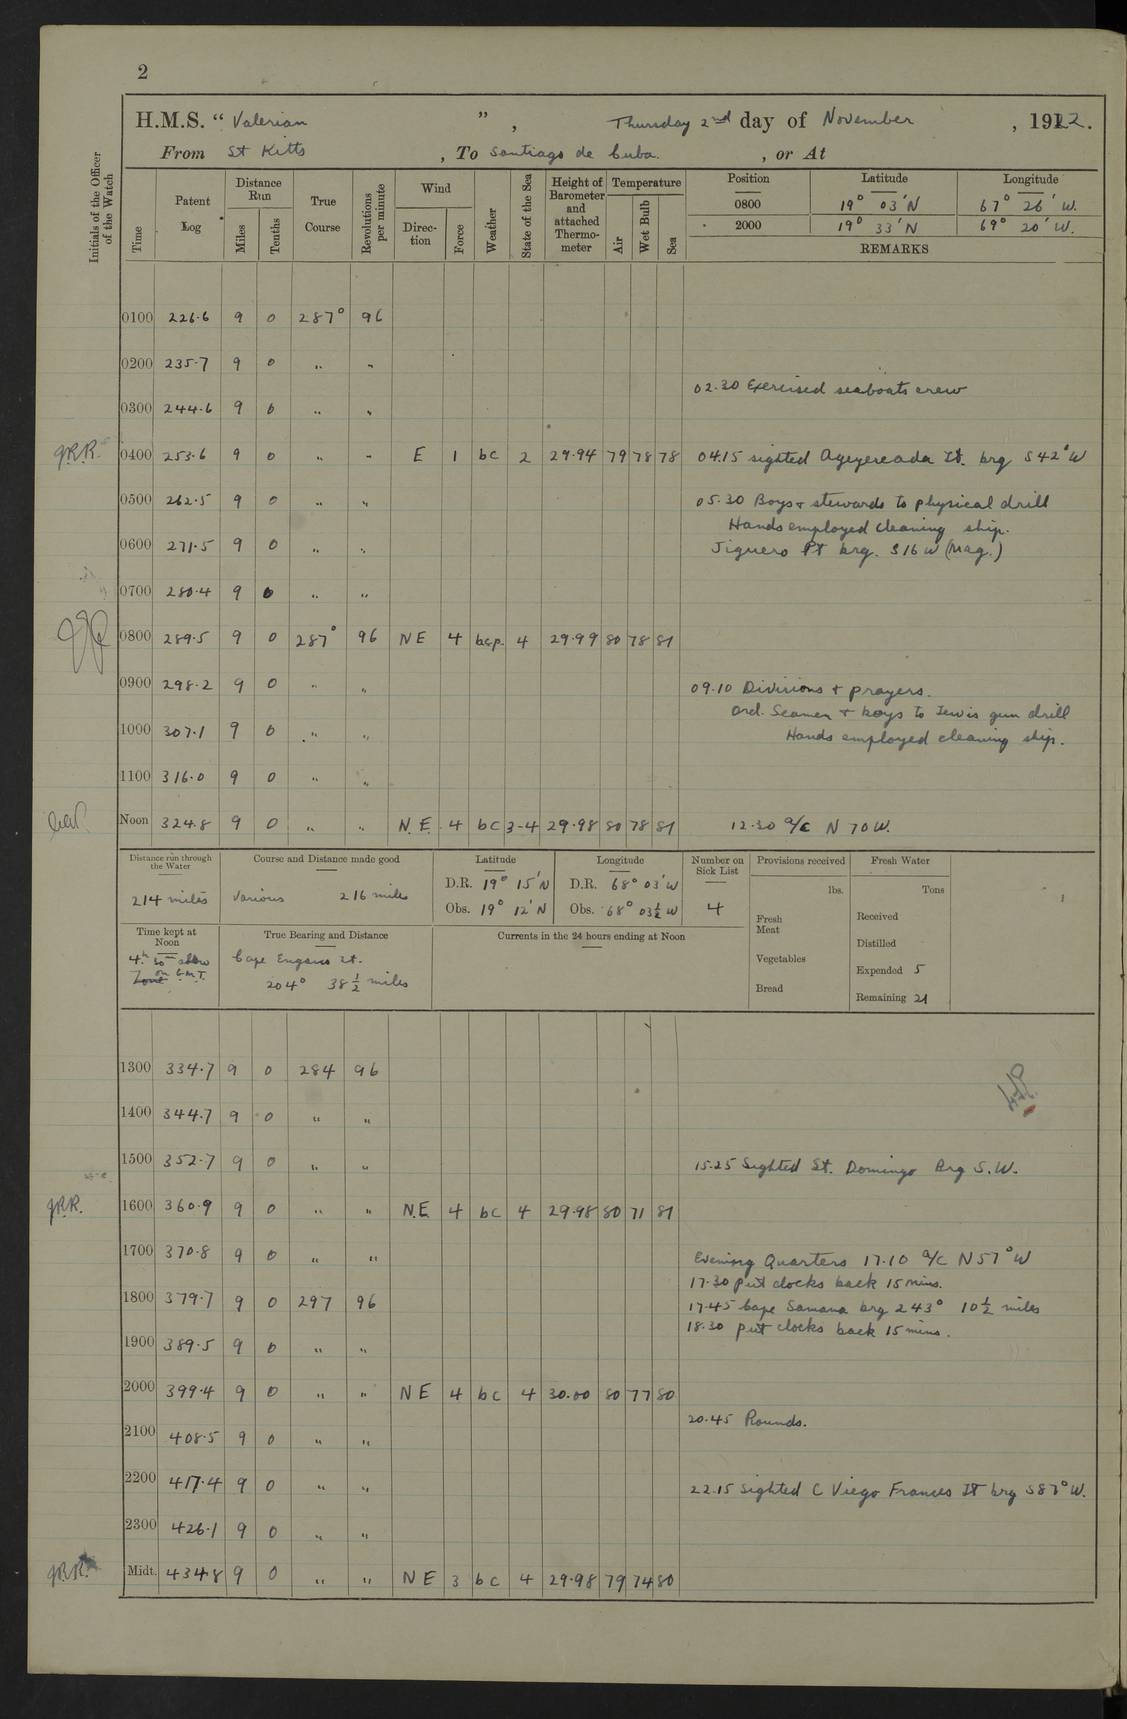 2
H.M.S. " Valerian " , Thursday 2nd day of November , 1922.
From St Kitts , To Santiago de Cuba. , or At
Initials of the Officer of the Watch
Time
Patent Log
Distance Run
Miles
Tenths
True Course
Revolutions per minute
Wind
Direction
Force
Weather
State of the Sea
Height of Barometer and attached Thermometer
Temperature
Air
Wet Bulb
Sea
Position Latitude Longitude
0800 19° 03' N 67° 26' W.
2000 19° 33' N 69° 20' W.
REMARKS
0100 226.6 9 0 287° 96
0200 235.7 9 0 " "
02.30 Exercised seaboats crew
0300 244.6 9 0 " "
J.R.R. 0400 253.6 9 0 " " E 1 bc 2 29.94 79 78 78 04.15 sighted Lt. brg S 42° W
0500 262.5 9 0 " " 05.30 Boys + stewards to physical drill
Hands employed cleaning ship.
0600 271.5 9 0 " " Jiguero Pt brg. S 16 W (Mag.)
0700 280.4 9 0 " "
0800 289.5 9 0 287° 96 NE 4 bcp. 4 29.99 80 78 81
0900 298.2 9 0 " " 09.10 Divisions + prayers.
Ord. Seamen + boys to Lewis gun drill
1000 307.1 9 0 " " Hands employed cleaning ship.
1100 316.0 9 0 " "
Noon 324.8 9 0 " " N.E. 4 bc 3-4 29.98 80 78 81 12.30 a/c N 70 W.
Distance run through the Water
214 miles
Course and Distance made good
Various 216 miles
Latitude
D.R. 19° 15' N
Obs. 19° 12' N
Longitude
D.R. 68° 03' W
Obs. 68° 03½ W
Number on Sick List
4
Provisions received
lbs.
Fresh Meat
Vegetables
Bread
Fresh Water
Tons
Received
Distilled
Expended 5
Remaining 21
Time kept at Noon
4h 30m slow on G.M.T.
Zone
True Bearing and Distance
Cape Engano Lt.
204° 38½ miles
Currents in the 24 hours ending at Noon
1300 334.7 9 0 284 96
1400 344.7 9 0 " "
1500 352.7 9 0 " " 15.25 Sighted St. Domingo Brg S.W.
J.R.R. 1600 360.9 9 0 " " N.E. 4 bc 4 29.98 80 71 81
1700 370.8 9 0 " " Evening Quarters 17.10 a/c N 57° W
17.30 put clocks back 15 mins.
1800 379.7 9 0 297 96 17.45 Cape Samana brg 243° 10½ miles
18.30 put clocks back 15 mins.
1900 389.5 9 0 " "
2000 399.4 9 0 " " NE 4 bc 4 30.00 80 77 80
20.45 Rounds.
2100 408.5 9 0 " "
2200 417.4 9 0 " " 22.15 sighted C Viego Frances Lt brg S 87° W.
2300 426.1 9 0 " "
J.R.R. Midt. 434.8 9 0 " " NE 3 bc 4 29.98 79 74 80